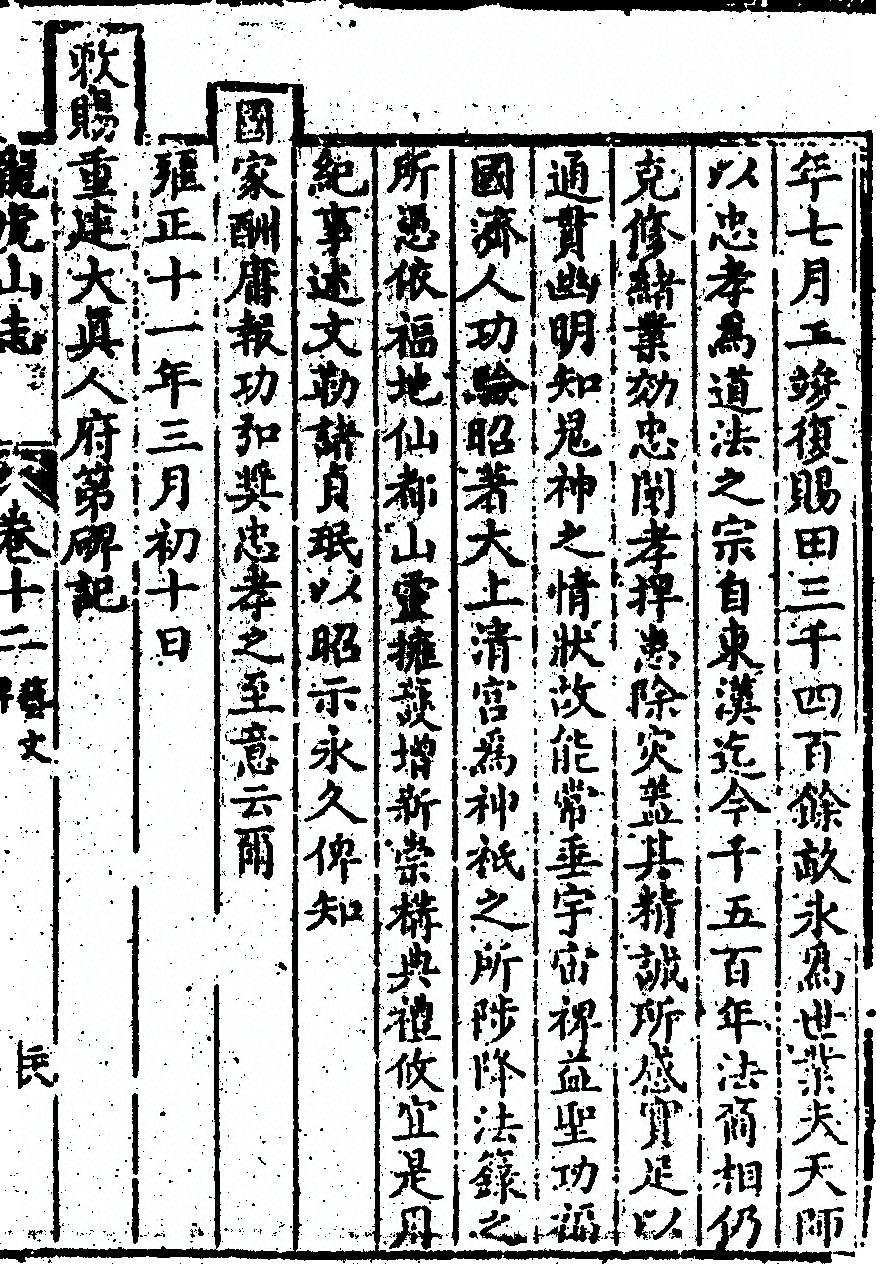 年七月工竣復賜田三千四百餘畝永爲世業夫天師
以忠孝爲道法之宗自東漢迄今千五百年法裔相仍
克修緒業効忠闡孝捍患除灾葢其精誠所感實足以
通貫幽明知鬼神之情狀故能常垂宇宙禆益聖功福
國濟人功驗昭著大上清宮爲神祇之所陟降法籙之
所憑依福地仙都山靈擁護增新崇構典禮攸宜是用
紀事述文勒諸貞珉以昭示永久俾知
國家酬庸報功弘奬忠孝之至意云爾
雍正十一年三月初十日
敕賜重建大眞人府第碑記
龍虎山志 卷十二 藝文 碑